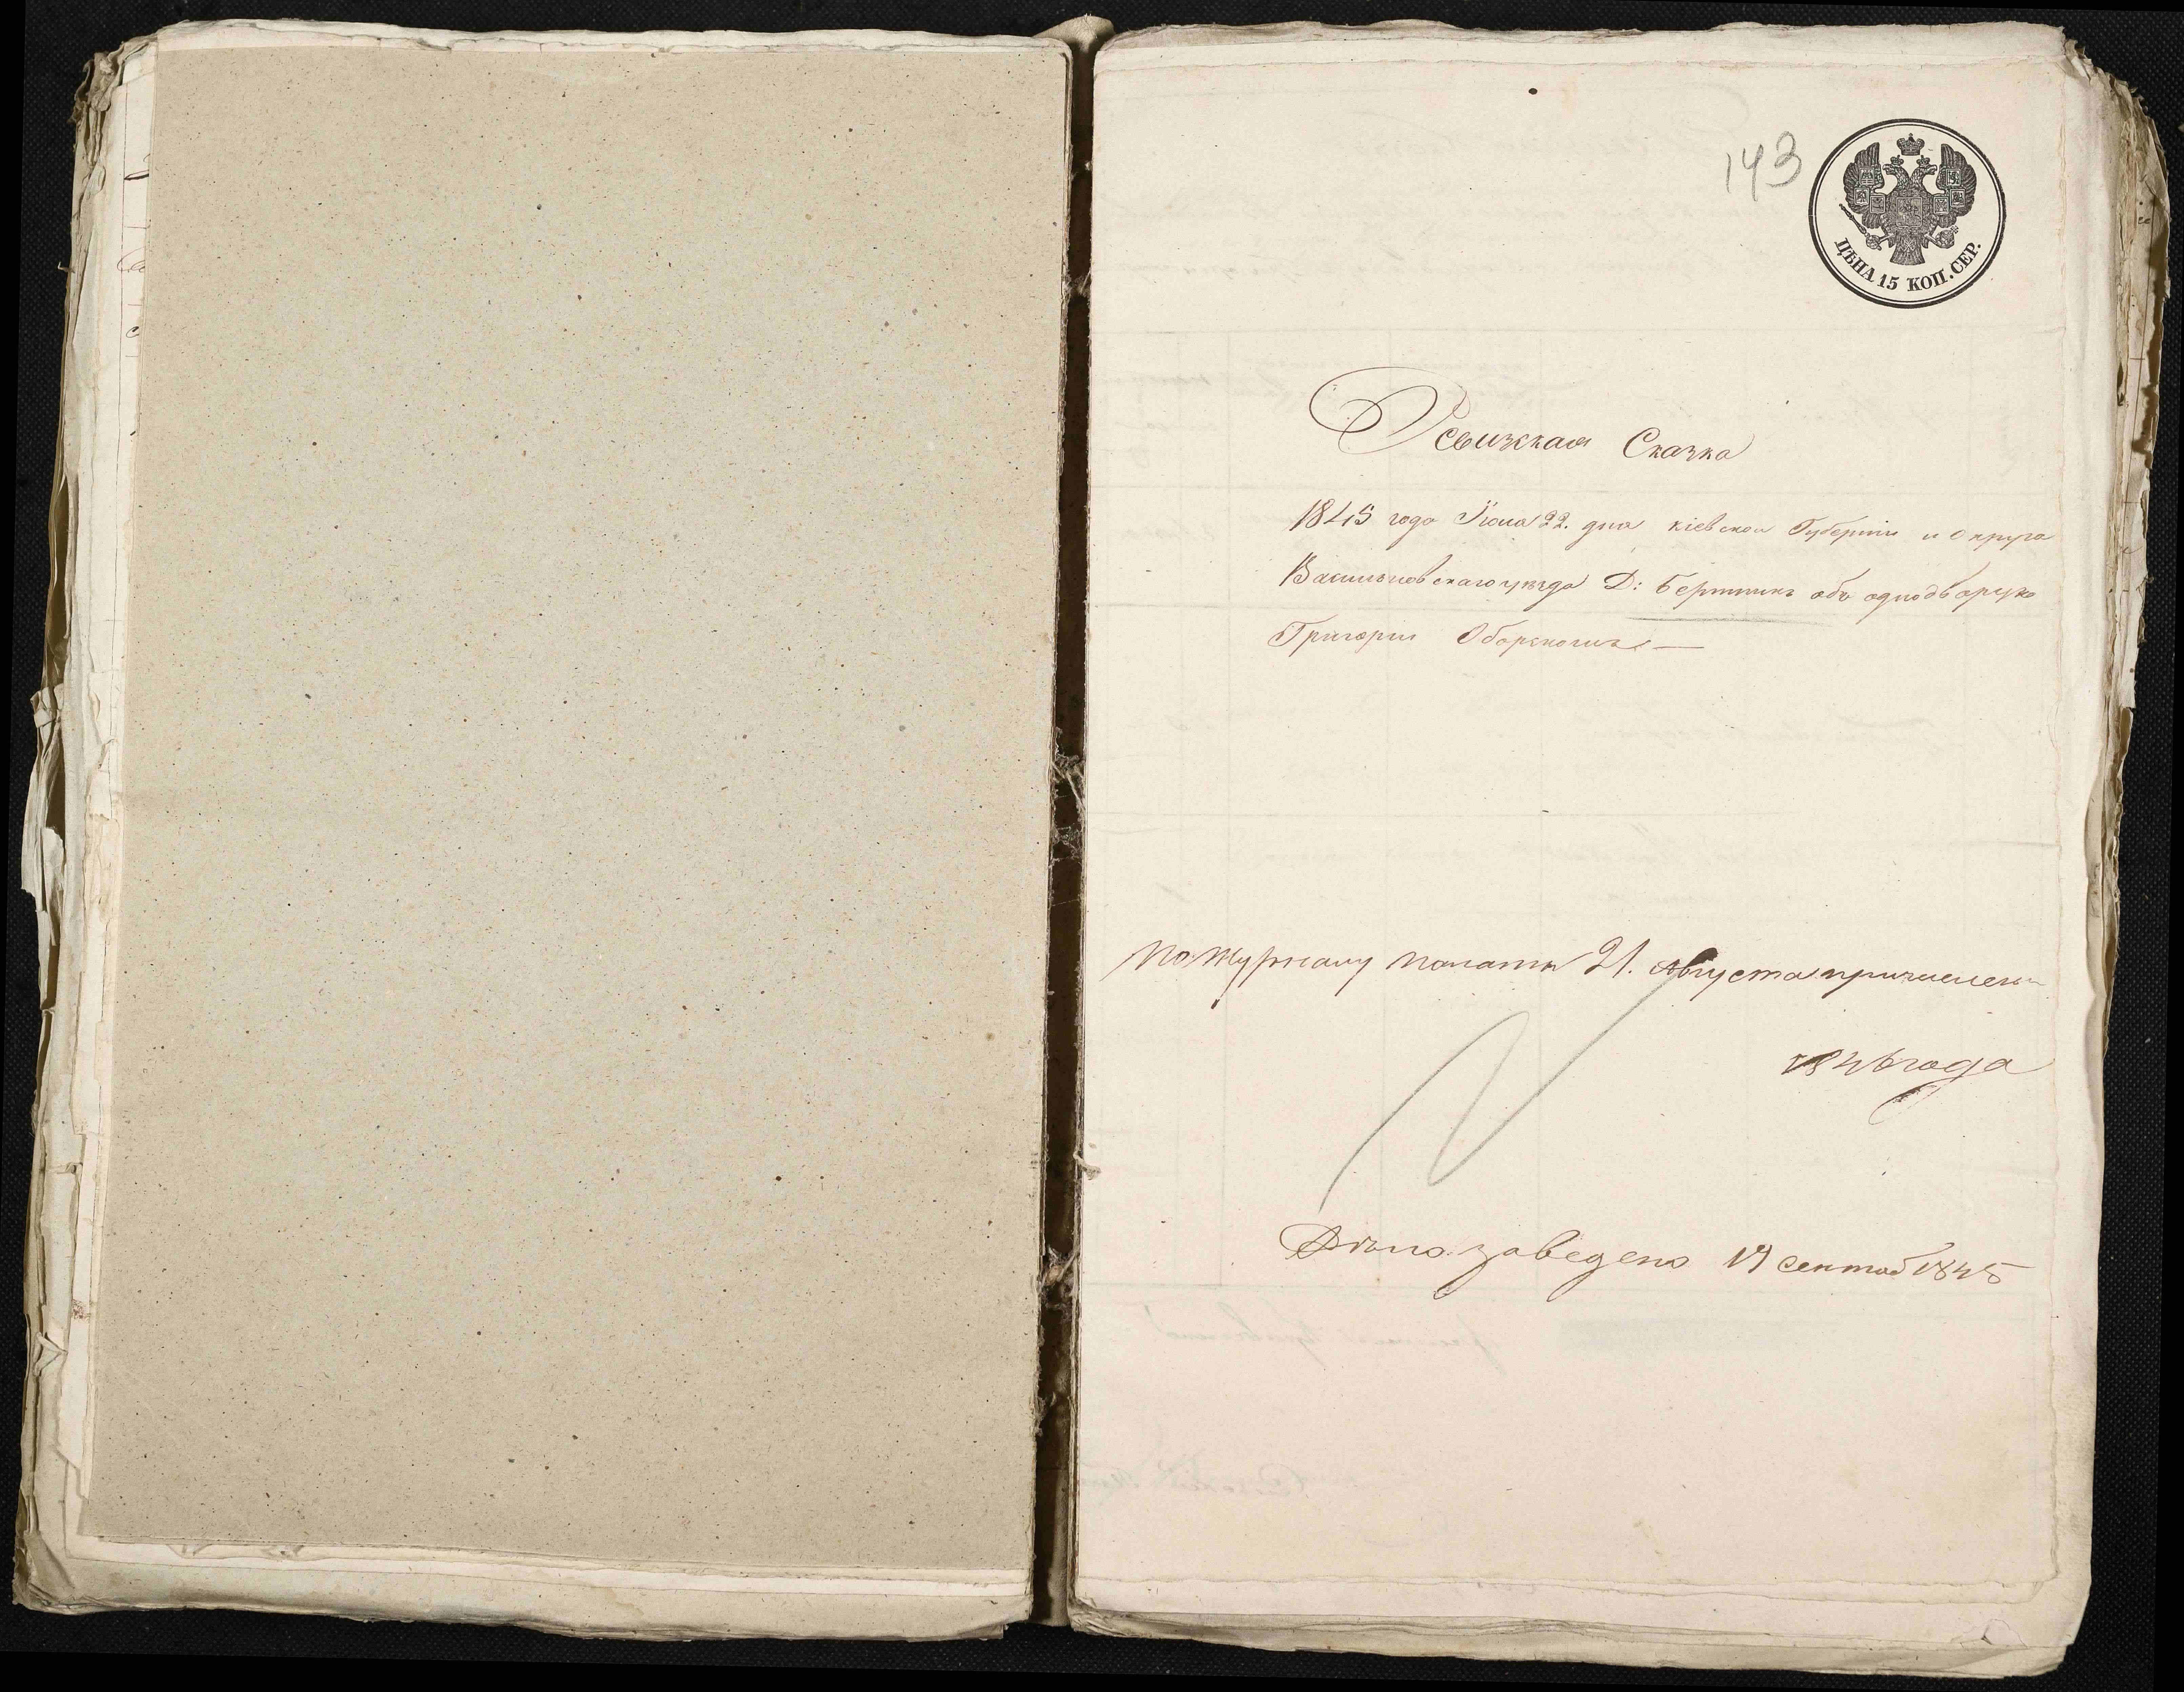 143
ЦѢНА 15 КОП. СЕР.
Ревизкая Сказка
1845 года Июля 22. дня кіевской Губерніи и Округа
Васильковскаго уѣзда Д: объ однодворцѣ
Григоріи
По Журналу палаты 21. Августа причислены
1846 года
Дѣло заведено 19 сентяб 1845